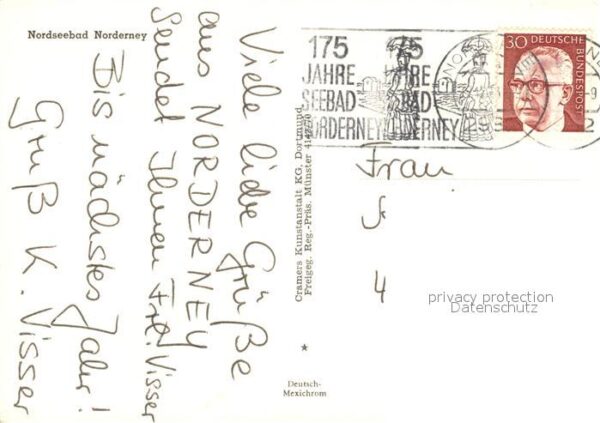 Nordseebad Norderney
Viele liebe Grüße
aus NORDERNEY
sendet Ihnen Frl. Visser
Bis nächstes Jahr!
Gruß K. Visser
Cramers Kunstanstalt KG, Dortmund
Freigeg. Reg.-Präs. Münster
Deutsch-
Mexichrom
175
JAHRE
SEEBAD
NORDERNEY
75
HRE
BAD
DERNEY
30
DEUTSCHE
BUNDESPOST
Frau
4
privacy protection
Datenschutz